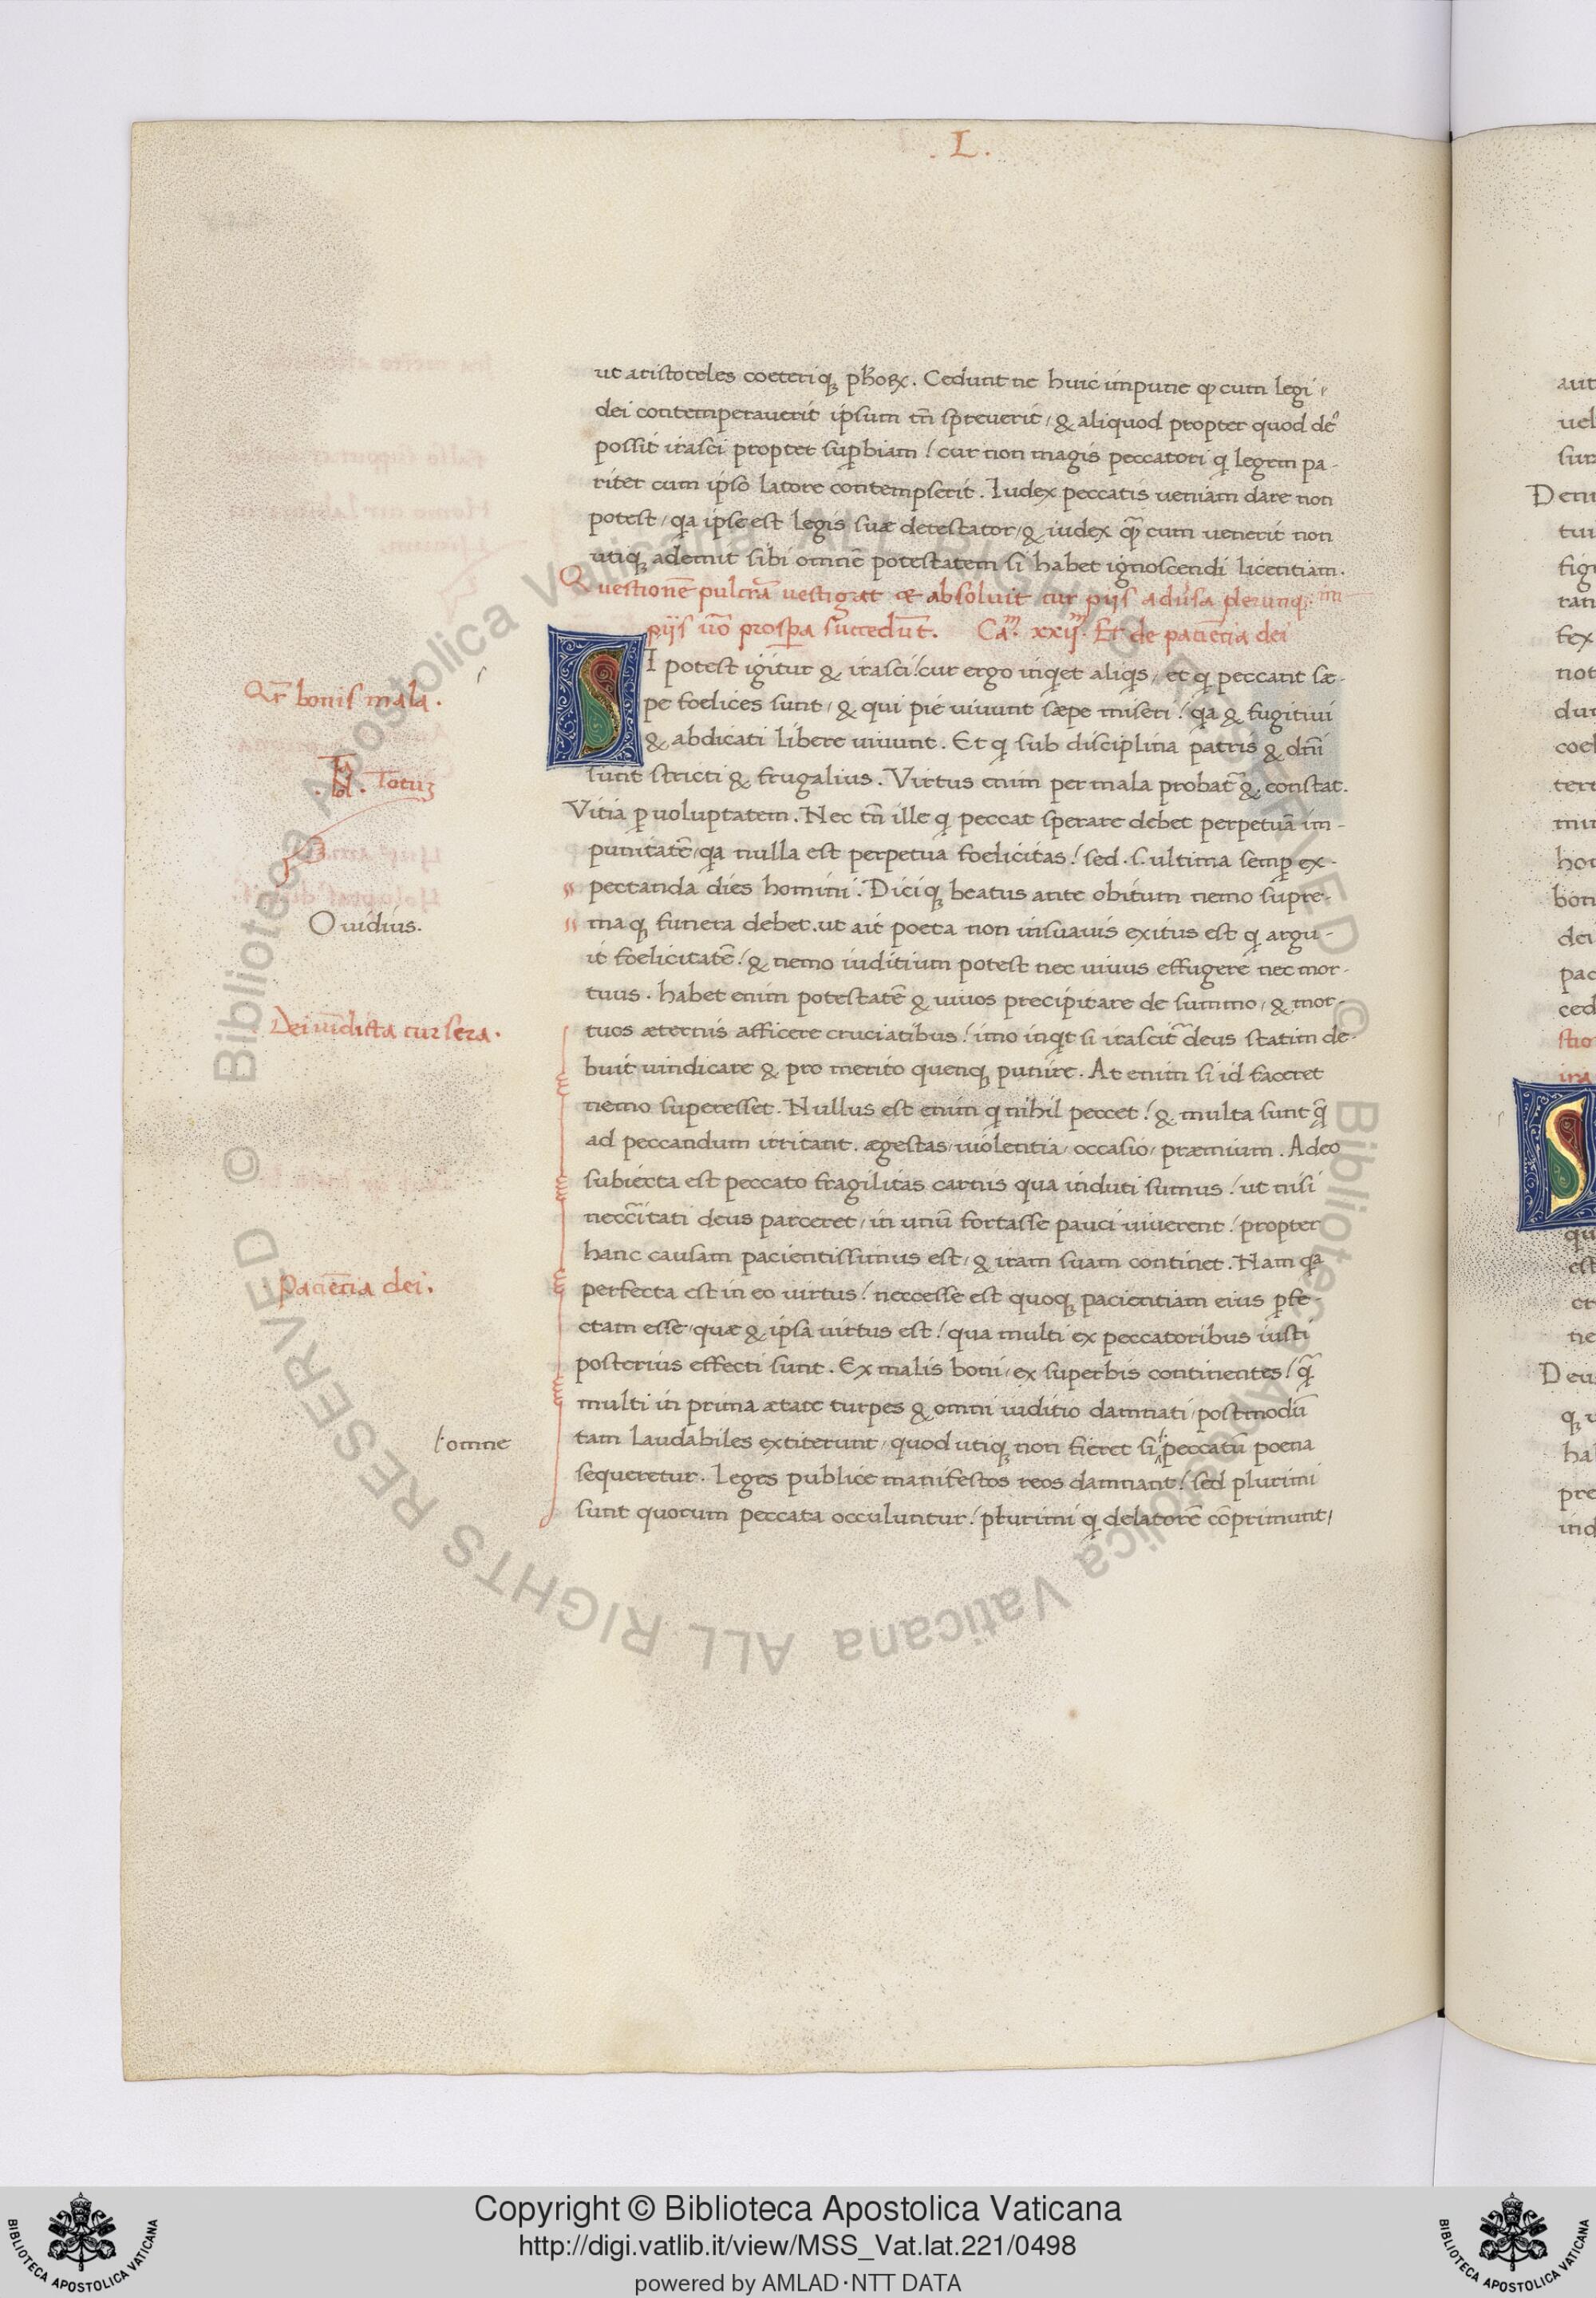 . L .
ut aristoteles coeteriqȝ ph̄oꝝ. Cedunt ne huic impune ꝙ cum legi
dei contemperauerit ipsum tn̄ spreuerit / & aliquod propter quod de9
possit irasci propter supbiam / cur non magis peccatori q legem pa-
riter cum ipso latore contempserit. Iudex peccatis ueniam dare non
potest / qa ipse est legis suæ detestator / & iudex qm̄ cum uenerit non
utiqȝ ademit sibi omnē potestatem si habet ignoscendi licentiam.
Questionē pulcrā uestigat et absoluit cur piis aduersa plerunqȝ im
piis uō prospa succedūt. Cam. xxij. Et de paciētia dei
SI potest igitur & irasci / cur ergo inqet aliqs / et q peccant sæ-
pe foelices sunt / & qui pie uiuunt sæpe miseri / qa & fugitiui
& abdicati libere uiuunt. Et q sub disciplina patris & dn̄i
sunt stricti & frugalius. Virtus enim per mala probat̄ & constat.
Vitia ꝑ uoluptatem. Nec tn̄ ille q peccat sperare debet perpetuā im-
punitatē / qa nulla est perpetua foelicitas / sed .s. ultima semꝑ ex-
pectanda dies homini. Diciqȝ beatus ante obitum nemo supre-
maqȝ funera debet. ut ait poeta non insuauis exitus est q argu-
it foelicitatē / & nemo iuditium potest nec uiuus effugere nec mor-
tuus. habet enim potestatē & uiuos precipitare de summo / & mor-
tuos æternis afficere cruciatibus / imo inqt si irascit̄ deus statim de-
buit uindicare & pro merito quenqȝ punire. At enim si id faceret
nemo superesset. Nullus est enim q nihil peccet / & multa sunt q̄
ad peccandum irritant. ægestas / uiolentia / occasio / præmium. Adeo
subiecta est peccato fragilitas carnis qua induti sumus / ut nisi
neccītati deus parceret / in unū fortasse pauci uiuerent / propter
hanc causam pacientissimus est / & iram suam continet. Nam qa
perfecta est in eo uirtus / neccesse est quoqȝ pacientiam eius ꝑfe
ctam esse / quæ & ipsa uirtus est / qua multi ex peccatoribus iusti
posterius effecti sunt. Ex malis boni / ex superbis continentes / q̄
multi in prima ætate turpes & omni iuditio damnati / postmodū
tam laudabiles extiterunt / quod utiqȝ non fieret si peccatū poena
sequeretur. Leges publice manifestos reos damnant / sed plurimi
sunt quorum peccata occuluntur / plurimi q delatorē cōprimunt /
Qr̄ bonis mala.
Totuȝ
Ouidius.
Dei uīdicta cur sera.
paciētia dei.
omne
aut
uel
sur
Denu
tui
figu
ran
fex
not
dur
coel
terr
mir
hou
bon
dei
pac
ced
stio
ira
S
qu
est
et
ne
Deu
qȝ u
ha
pre
ind
© Biblioteca Apostolica Vaticana ALL RIGHTS RESERVED
© Biblioteca Apostolica Vaticana ALL RIGHTS RESERVED
Copyright © Biblioteca Apostolica Vaticana
http://digi.vatlib.it/view/MSS_Vat.lat.221/0498
powered by AMLAD·NTT DATA
BIBLIOTECA APOSTOLICA VATICANA
BIBLIOTECA APOSTOLICA VATICANA